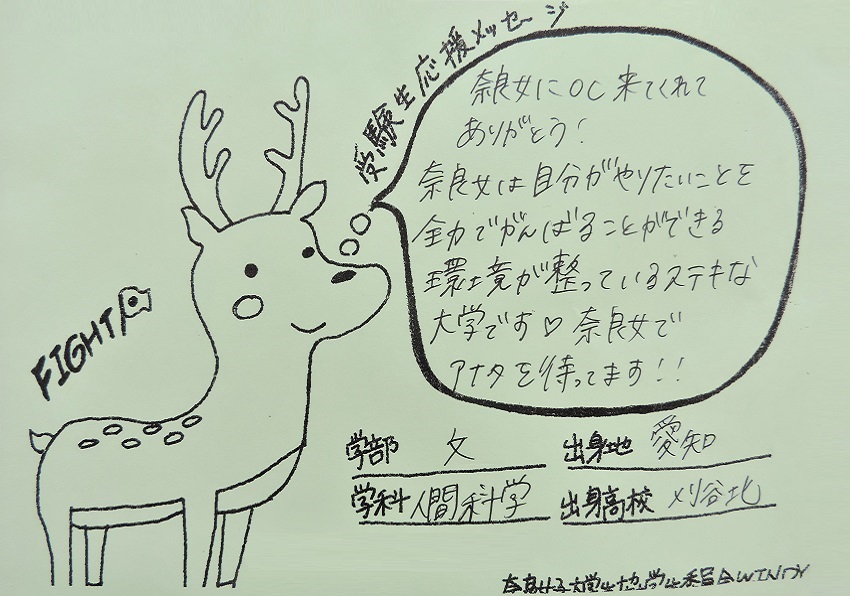 受験生応援メッセージ
奈良女にOC来てくれて
ありがとう!
奈良女は自分がやりたいことを
全力でがんばることができる
環境が整っているステキな
大学です♡ 奈良女で
アナタを待ってます!!
FIGHT
学部 文 出身地 愛知
学科 人間科学 出身高校 刈谷北
奈良女子大学生協学生委員会WINDY